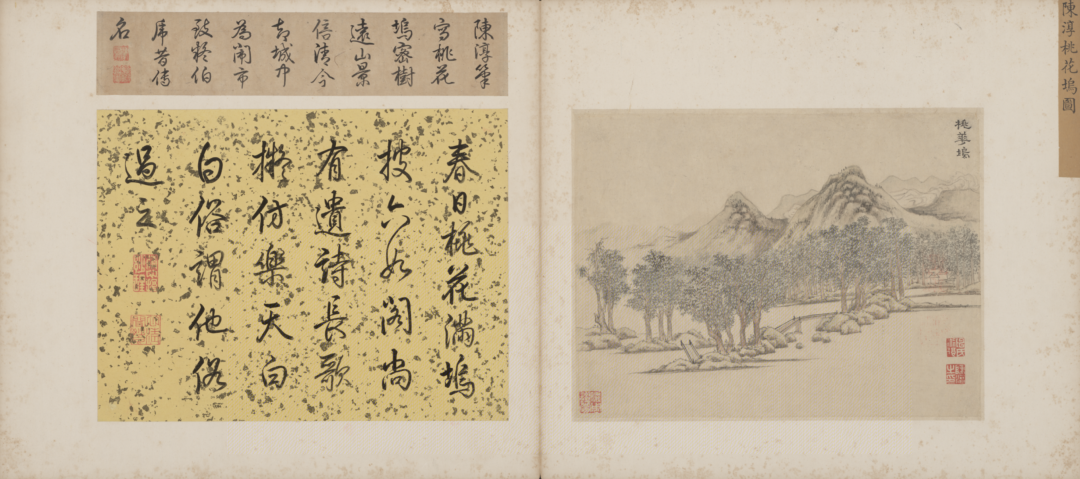 陳淳桃花塢圖
桃華塢
陳淳筆
寫桃花
塢密樹
遠山景
倍清今
城中
為鬧市
伯
虎昔傳
名
春日桃花滿塢
披六如閣尚
有遺詩長歌
擬仿樂天白
白俗謂他俗
過之